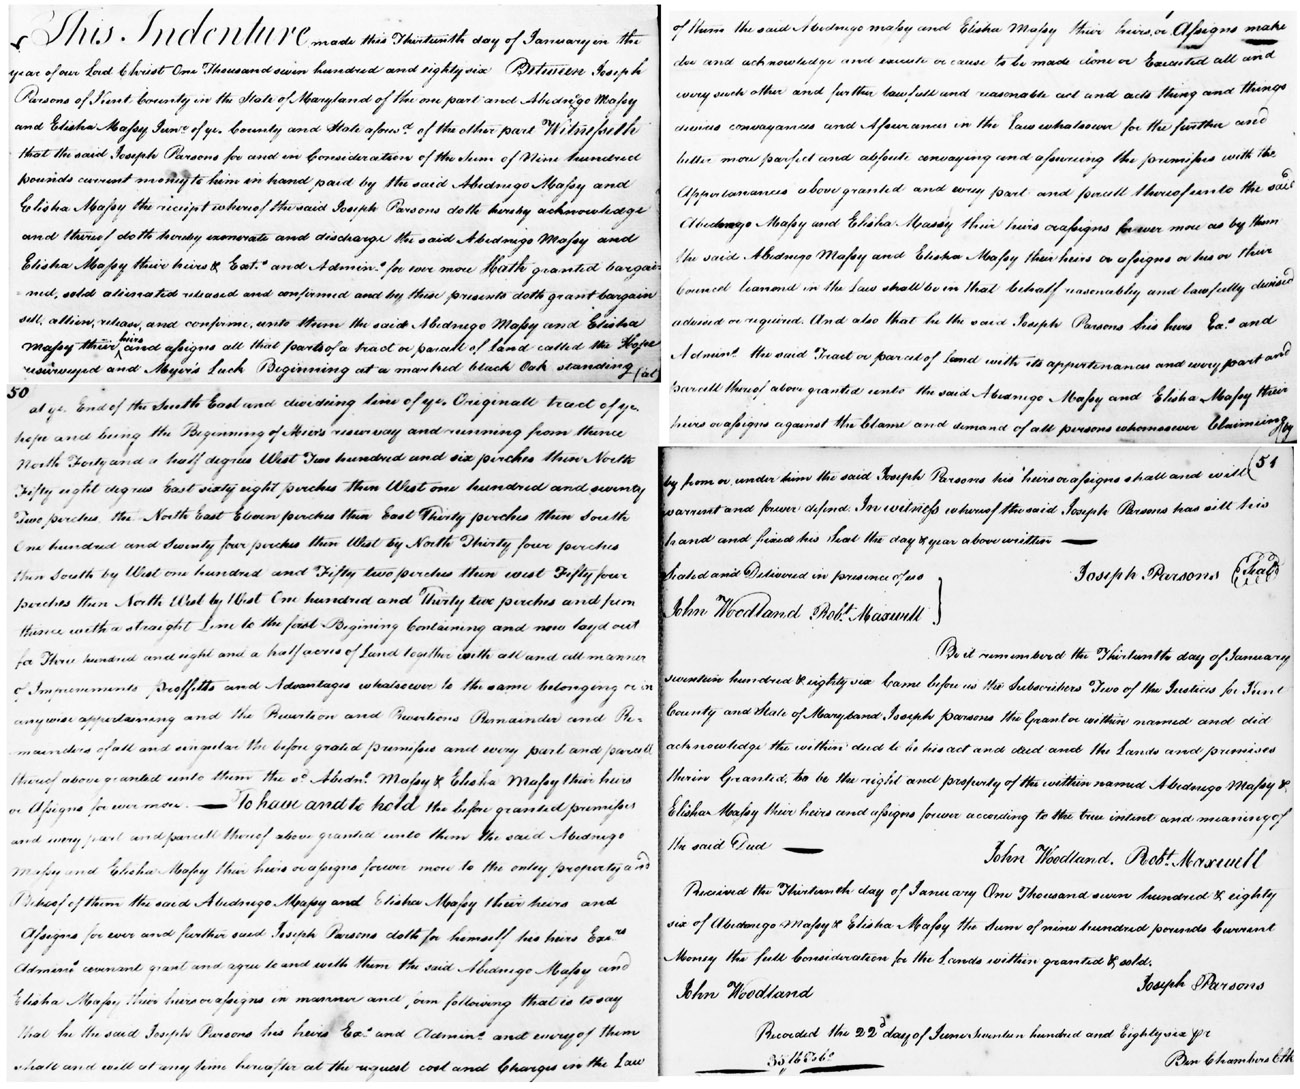 This Indenture made this Thirteenth day of January in the
year of our Lord Christ One Thousand seven hundred and eighty six Between Joseph
Parsons of Kent County in the State of Maryland of the one part and Abednego Massy
and Elisha Massy Junr. of ye. County and State aforesd. of the other part Witnesseth
that the said Joseph Parsons for and in Consideration of the sum of Nine hundred
pounds current money to him in hand paid by the said Abednego Massy and
Elisha Massy the receipt whereof the said Joseph Parsons doth hereby acknowledge
and thereof doth hereby exonerate and discharge the said Abednego Massy and
Elisha Massy their heirs & Exts. and Admins. for ever more Hath granted bargai-
-ned, sold alienated released and confirmed and by these presents doth grant bargain
sell, allien, release, and confirme, unto them the said Abednego Massy and Elisha
Massy their heirs and assigns all that parts of a tract or parcell of land called the Hope
resurveyed and Myers Luck Beginning at a marked black Oak standing (at
50
at ye. End of the South East and dividing line of ye. Originall tract of ye.
hope and being the Beginning of resurvay and running from thence
North Forty and a half degrees West Two hundred and six perches then North
Fifty eight degrees East sixty eight perches then West one hundred and seventy
Two perches the North East Eleven perches then East Thirty perches then South
One hundred and Seventy four perches then West by North Thirty four perches
then South by West one hundred and Fifty two perches then west Fifty four
perches then North West by West One hundred and Thirty two perches and from
thence with a straight Line to the first Begining Containing and now layd out
for Three hundred and eight and a half acres of Land together with all and all manner
of Improvements proffitts and Advantages whatsoever to the same belonging or in
anywise appertaining and the Revertion and Revertions Remainder and Re-
mainders of all and singular the before grated premises and every part and parcell
thereof above granted unto them the sd. Abedn. Massy & Elisha Massy their heirs
or Assigns for ever more. — To have and to hold the before granted premises
and every part and parcell thereof above granted unto them the said Abednego
Massy and Elisha Massy their heirs or assigns forever more to the only property and
Behoof of them the said Abednego Massy and Elisha Massy their heirs and
Assigns for ever and further said Joseph Parsons doth for himself his heirs Exers
Admins. covenant grant and agree to and with them the said Abednego Massy and
Elisha Massy their heirs or assigns in manner and form following that is to say
that he the said Joseph Parsons his heirs Exs. and Admins. and every of them
shall and will at any time hereafter at the request cost and Charges in the Law
of them the said Abednego massy and Elisha Massy their heirs, or Assigns make
doe and acknowledge and execute or cause to be made done or Executed all and
every such other and further lawfull and reasonable act and acts thing and things
devices conveyances and Assurances in the Law whatsoever for the further and
better more perfect and absolute conveying and assureing the premisses with the
Appertanances above granted and every part and parcell thereof unto the said
Abednego Massy and Elisha Massy their heirs or assigns for ever more as by them
the said Abednego Massy and Elisha Massy their heirs or assigns or his or their
Councel leanond in the Law shall be in that behalf reasonabley and lawfully devised
advised or required. And also that he the said Joseph Parsons his heirs Exs. and
Admins. the said Tract or parcel of Land with its appertenances and every part and
parcell thereof above granted unto the said Abednego Massy and Elisha Massy their
heirs or assigns against the Clame and demand of all persons whomsoever Claimeing (by
51
by from or under him the said Joseph Parsons his heirs or assigns shall and will
warrent and forever defend. In witness whereof the said Joseph Parsons has sett his
hand and fixed his Seal the day & year above written —
Sealed and Delivered in presence of us
Joseph Persons (Seal)
John Woodland Robt. Maxwell
Be it rememberd the Thirteenth day of January
seventeen hundred & eighty six Came before us the Subscribers Two of the Justices for Kent
County and State of Maryland Joseph parsons the Grantor within named and did
acknowledge the within deed to be his act and deed and the Lands and premises
therein Granted, to be the right and property of the within named Abednego Massy &
Elisha Massy their heirs and assigns forever according to the true intent and meaning of
the said Deed —
John Woodland. Robt. Maxwell
Received the Thirteenth day of January One Thousand seven hundred & eighty
six of Abednego Massy & Elisha Massy the Sum of nine hundred pounds Current
Money the full Consideration for the Lands within granted & sold.
John Woodland
Joseph Parsons
Recorded the 22d day of June Seventeen hundred and Eighty six pr
Ben Chambers Clk